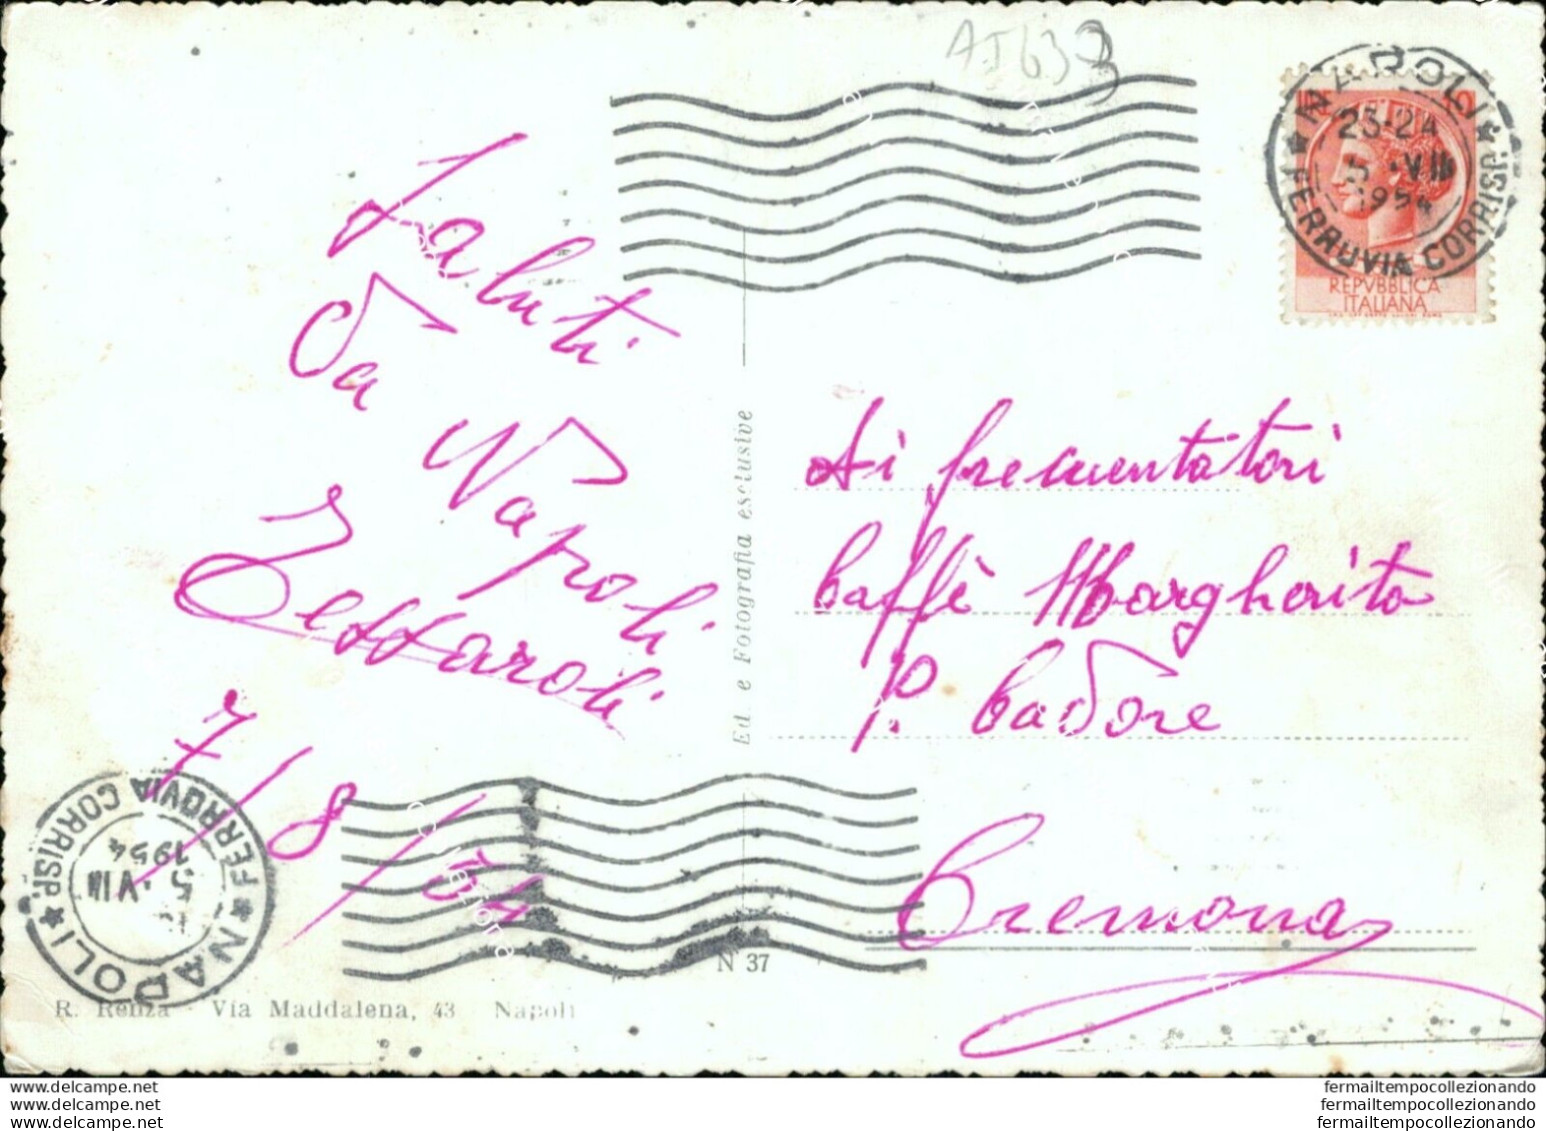 AJ633
NAPOLI
23-24
5 ·VIII
1954
FERROVIA CORRISP.
REPVBBLICA
ITALIANA
Saluti
Da
Napoli
Zeffaroli
7/8/54
Ed. e Fotografia esclusive
Ai frequentatori
Caffè Margherita
P. Cadore
Cremona
NAPOLI
5 ·VIII
1954
FERROVIA CORRISP.
N 37
R. Renza - Via Maddalena, 43 Napoli
delcampe.net
delcampe.net
delcampe.net
fermailtempocollezionando
fermailtempocollezionando
fermailtempocollezionando